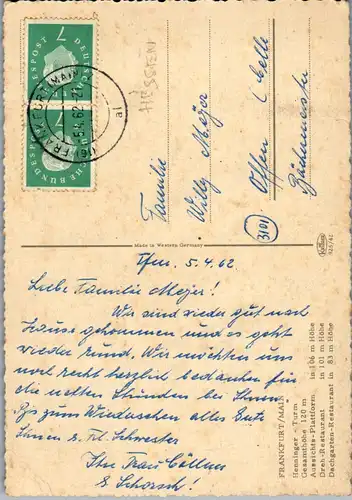 DEUTSCHE BUNDESPOST
7
DEUTSCHE BUNDESPOST
7
FRANKFURT (MAIN)
5.4.62-21
HESSEN
Familie
Willy Mejer
Offen (Celle
3101
Made in Western Germany
Ffm. 5.4.62
Liebe Familie Mejer!
Wir sind wieder gut nach
Hause gekommen und es geht
wieder rund. Wir möchten uns
noch recht herzlich bedanken für
die netten Stunden bei Ihnen
Bis zum Wiedersehen alles Gute
Ihnen u. Frl. Schwester
Ihre Frau
FRANKFURT/MAIN
Henninger-Turm
Gesamthöhe 120 m
Aussichts-Plattform in 106 m Höhe
Dreh-Restaurant in 101 m Höhe
Dachgarten-Restaurant in 83 m Höhe